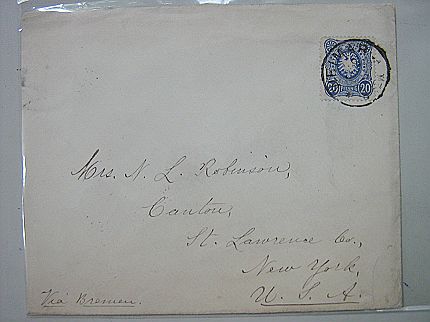 20
Mrs. N. L. Robinson,
Canton,
St. Lawrence Co.,
New York,
U. S. A.
Via Bremen.